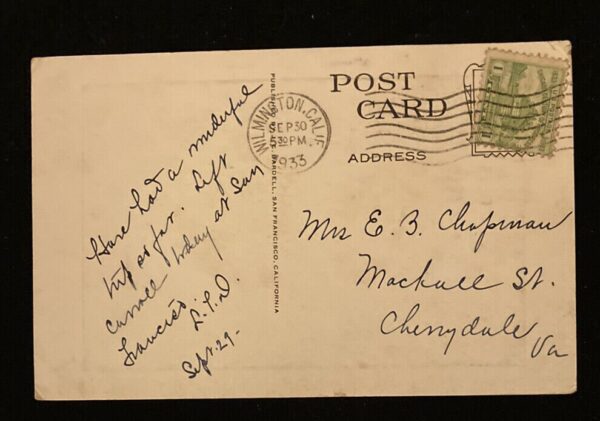 Have had a wonderful
trip so far. Left
Carroll today at San
Francisco.
L.P.D.
Sept. 29-
PUBLISHED BY BARDELL, SAN FRANCISCO, CALIFORNIA
WILMINGTON, CALIF.
SEP 30
5 30 PM
1933
POST
CARD
ADDRESS
Mrs E. B. Chapman
Mackall St.
Cherrydale
Va
1 1